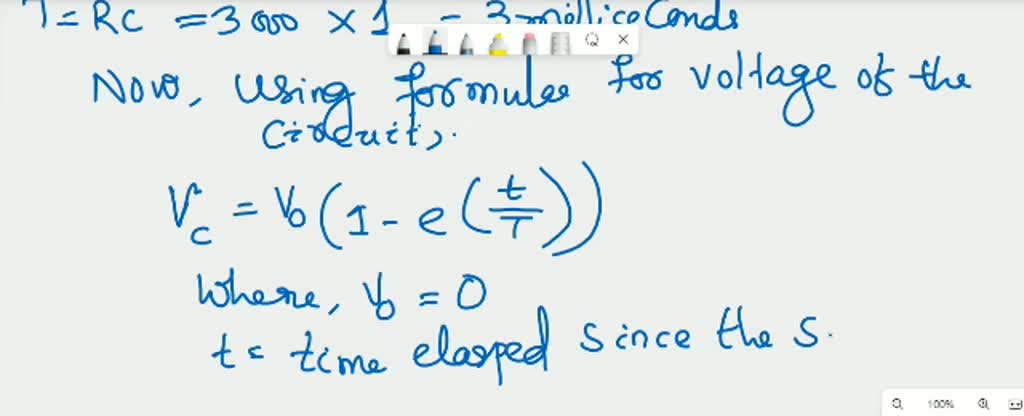 T = RC = 3000 × 1 = 3 milliseconds
Now, using formulae for voltage of the
circuit,.
Vc = V0 (1 - e (t/T))
Where, V0 = 0
t = time elasped since the s.
100%